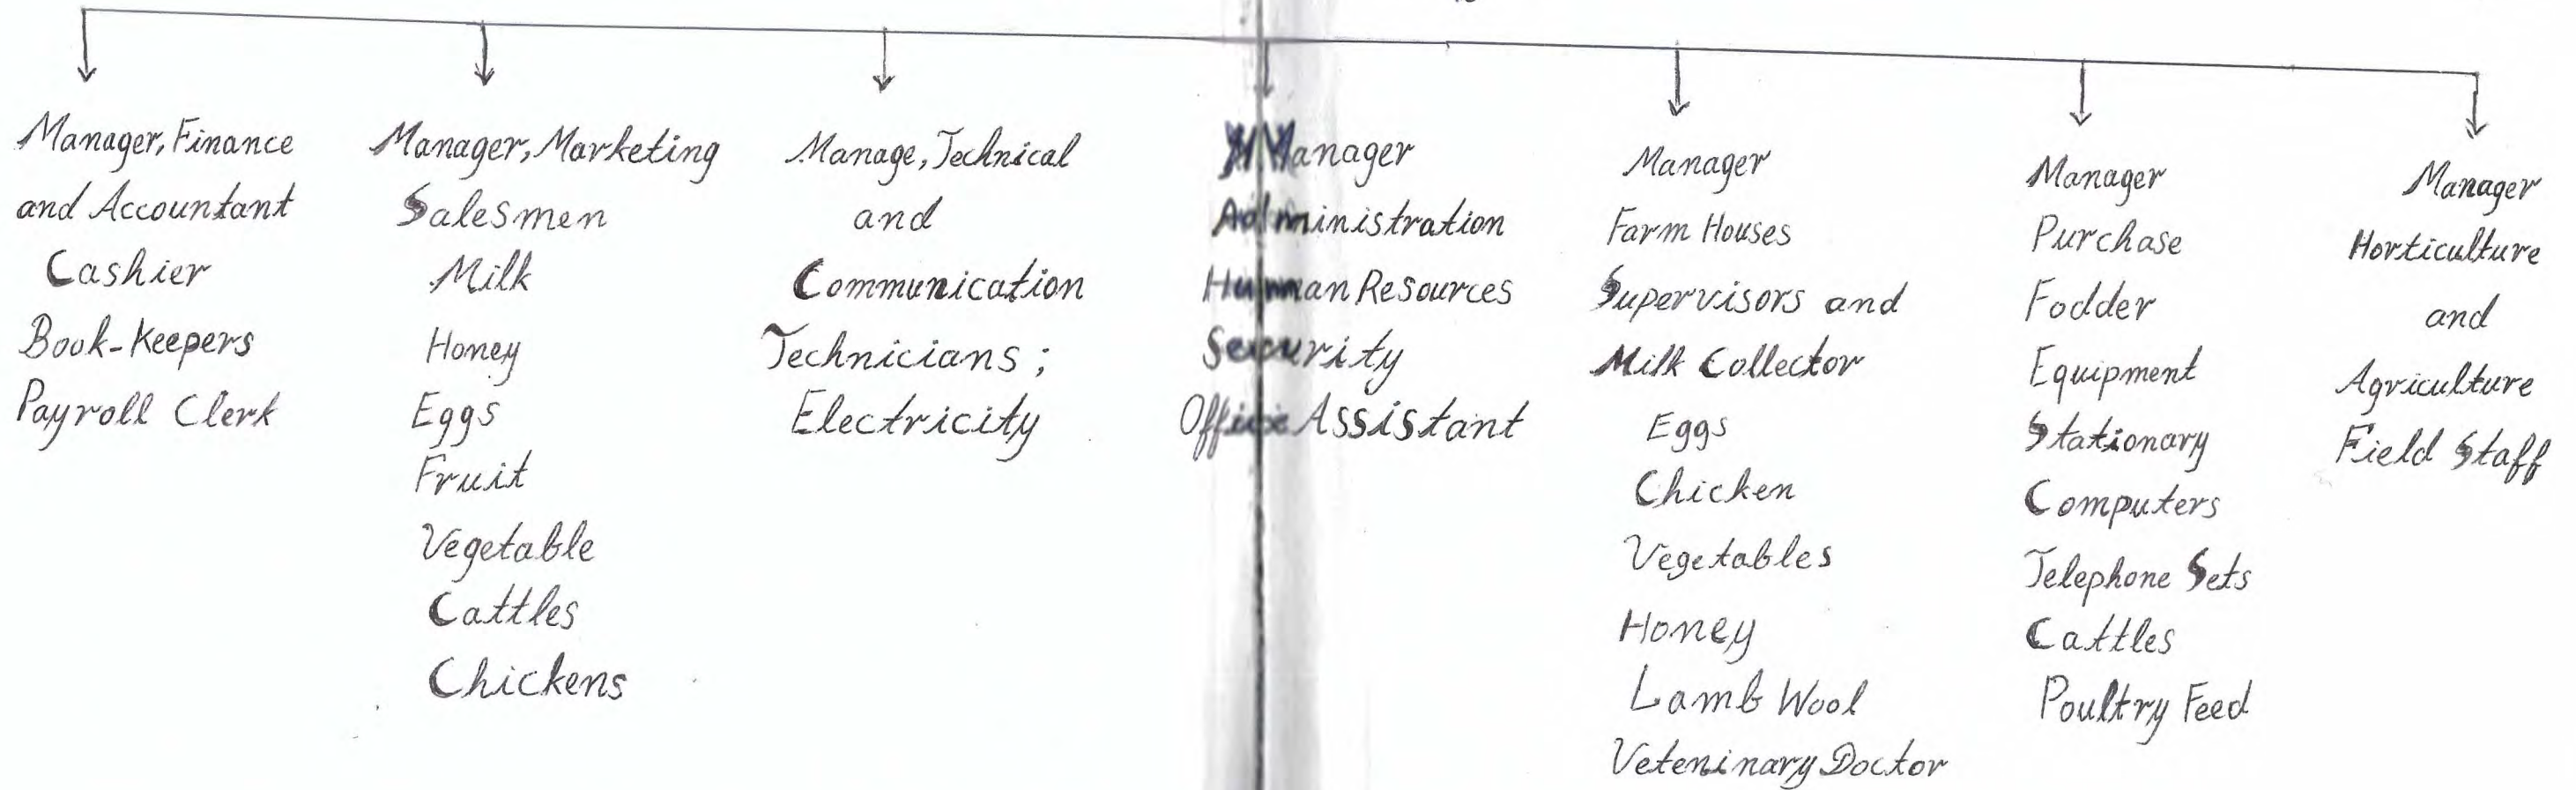 Manager, Finance
and Accountant
Cashier
Book-Keepers
Payroll Clerk
Manager, Marketing
Salesmen
Milk
Honey
Eggs
Fruit
Vegetable
Cattles
Chickens
Manage, Technical
and
Communication
Technicians ;
Electricity
Manager
Administration
Human Resources
Security
Office Assistant
Manager
Farm Houses
Supervisors and
Milk Collector
Eggs
Chicken
Vegetables
Honey
Lamb Wool
Veteninary Doctor
Manager
Purchase
Fodder
Equipment
Stationary
Computers
Telephone Sets
Cattles
Poultry Feed
Manager
Horticulture
and
Agriculture
Field Staff